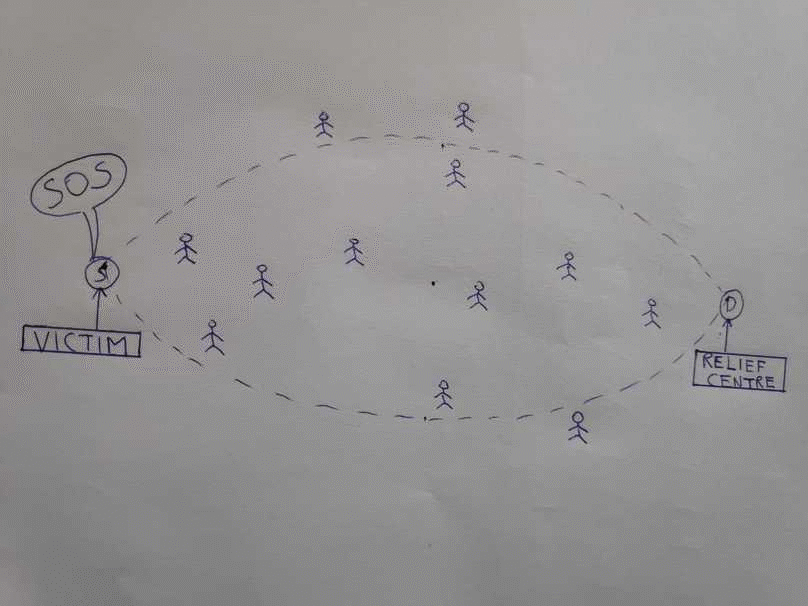 SOS
S
VICTIM
D
RELIEF
CENTRE